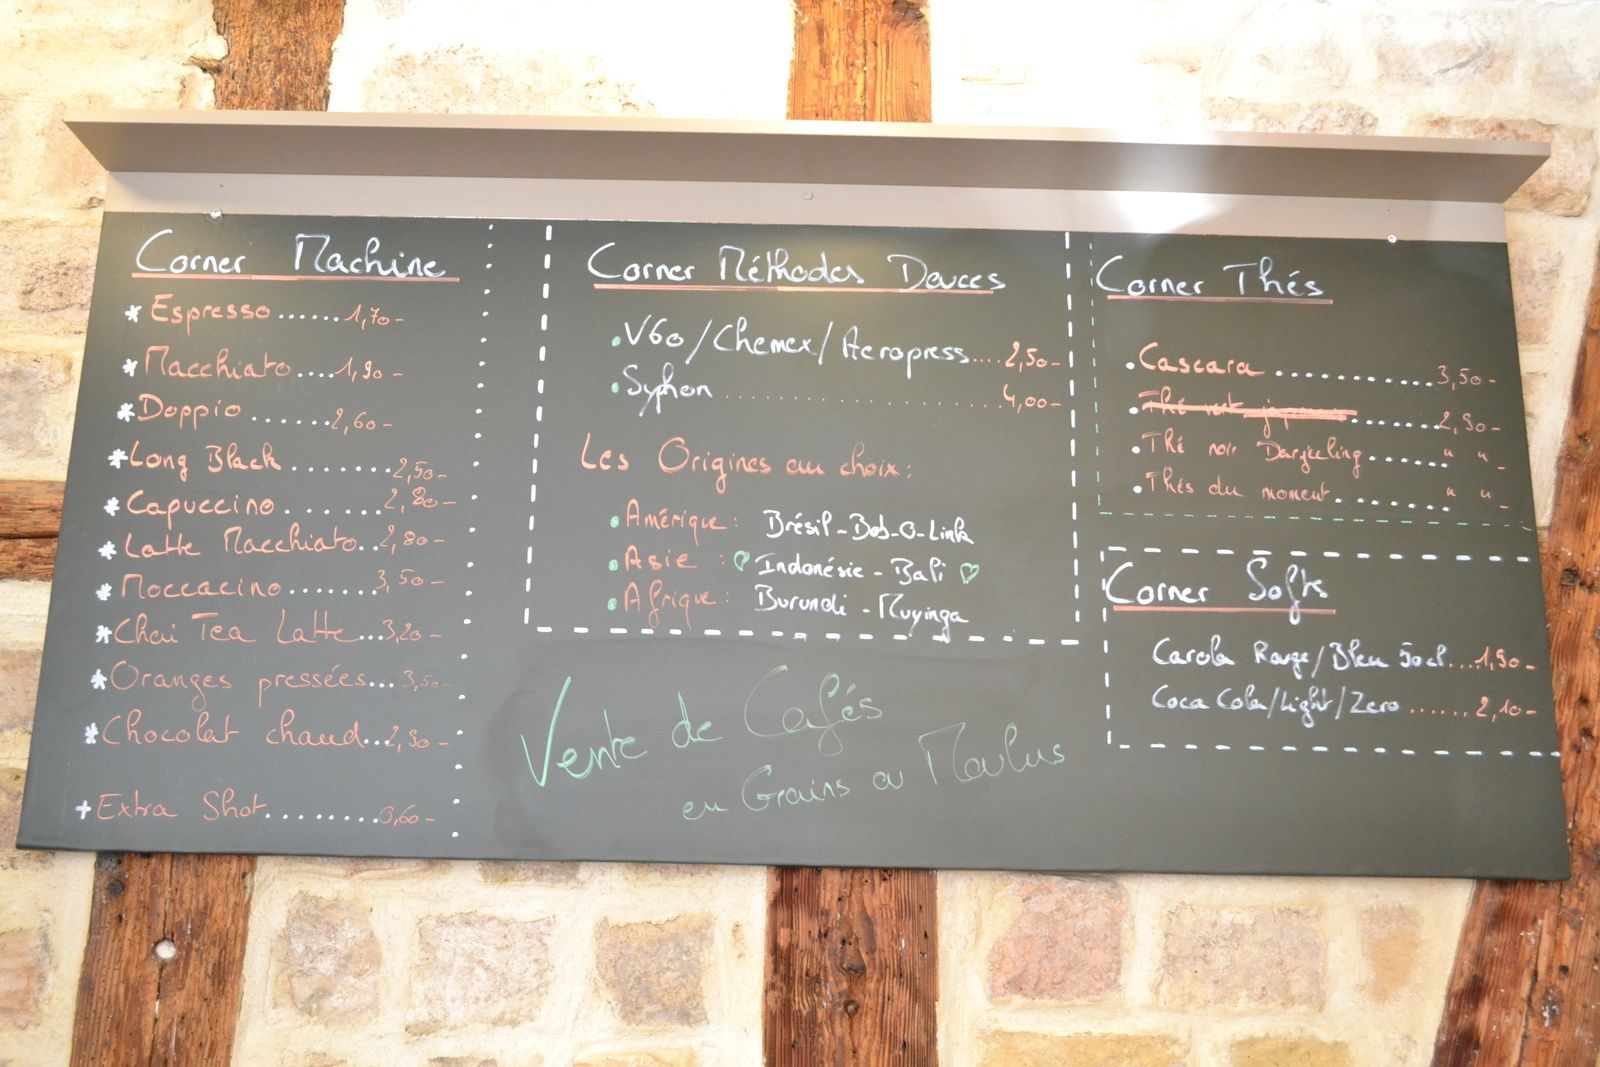 Corner Machine
* Espresso......1,70-
* Macchiato....1,90-
* Doppio.......2,60-
* Long Black........2,50-
* Capuccino........2,80-
* Latte Macchiato..2,80-
* Moccacino.......3,50-
* Chai Tea Latte...3,20-
* Oranges pressées...3,50-
* Chocolat chaud...2,90-
+ Extra Shot.........0,60-
Corner Méthodes Douces
• V60/Chemex/Aeropress....2,50-
• Syphon ....................4,00-
Les Origines au choix:
• Amérique: Brésil-Bob-O-Link
• Asie : ♡ Indonésie - Bali ♡
• Afrique: Burundi - Muyinga
Vente de Cafés
en Grains ou Moulus
Corner Thés
• Cascara ............3,50-
• Thé vert japonais .......2,90-
• Thé noir Darjeeling...... " " -
• Thés du moment........ " " -
Corner Softs
Carola Rouge/Bleu 50cl...1,90-
Coca Cola/Light/Zero ......2,10-